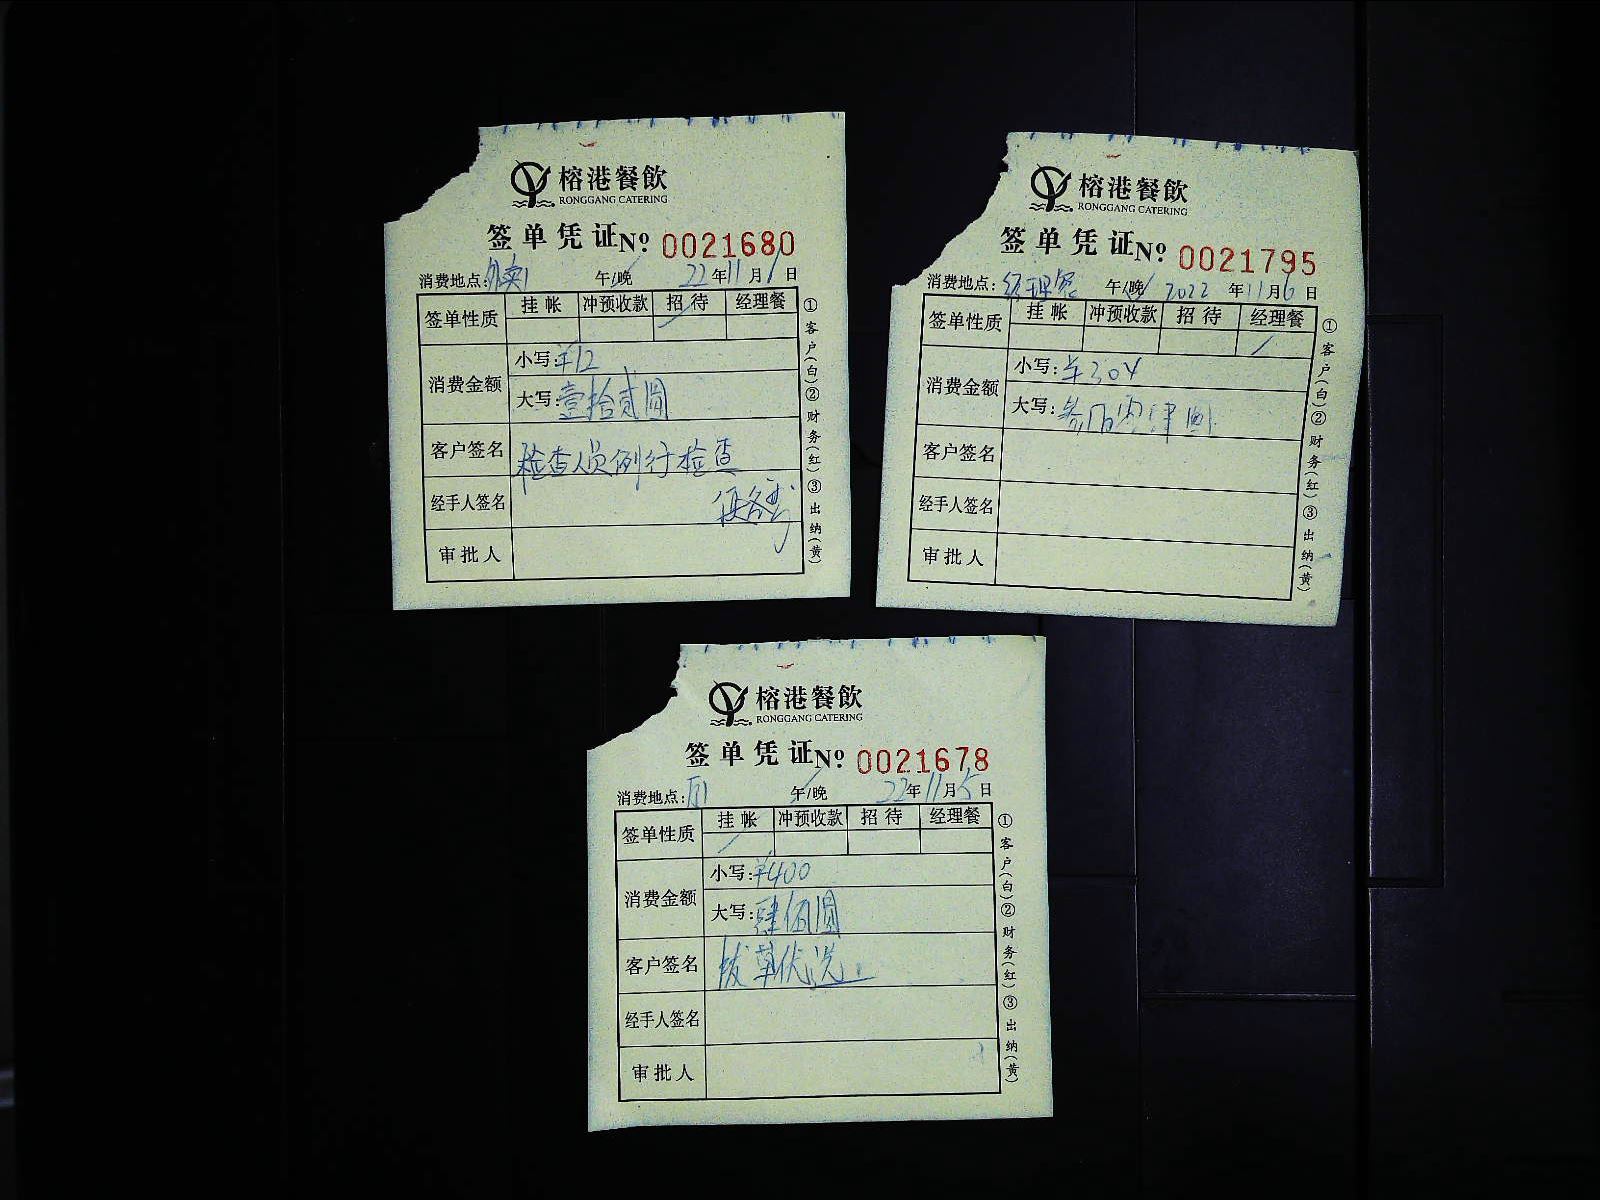 榕港餐飲
RONGGANG CATERING
签单凭证№ 0021680
消费地点:外卖1 午/晚 22年11月1日
签单性质 挂帐 冲预收款 招待 经理餐
消费金额 小写:¥12
大写:壹拾贰圆
客户签名 检查人员例行检查
经手人签名
审批人
①客户(白)②财务(红)③出纳(黄)
榕港餐飲
RONGGANG CATERING
签单凭证№ 0021795
消费地点:经理餐 午/晚 2022年11月6日
签单性质 挂帐 冲预收款 招待 经理餐
消费金额 小写:¥304
大写:叁佰零肆圆
客户签名
经手人签名
审批人
①客户(白)②财务(红)③出纳(黄)
榕港餐飲
RONGGANG CATERING
签单凭证№ 0021678
消费地点: 午/晚 22年11月5日
签单性质 挂帐 冲预收款 招待 经理餐
消费金额 小写:¥400
大写:肆佰圆
客户签名 拔草优选
经手人签名
审批人
①客户(白)②财务(红)③出纳(黄)